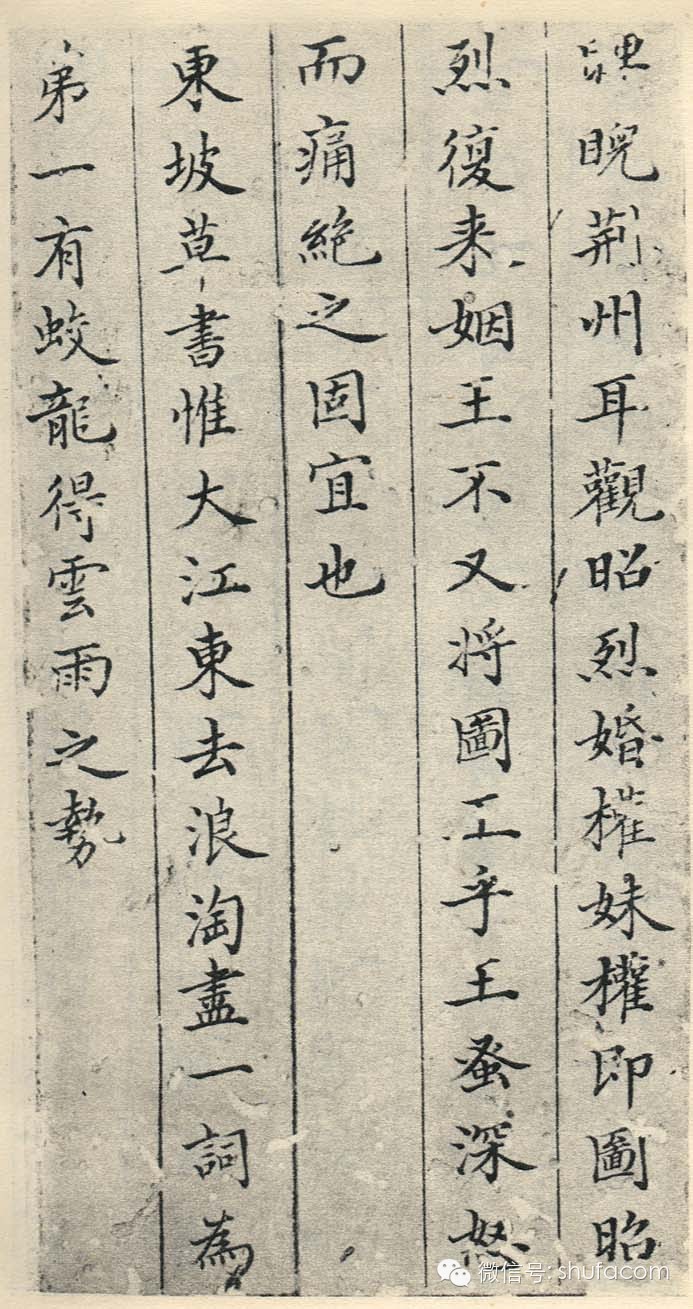 睨荊州耳觀昭烈婚權妹權即圖昭
烈復来姻王不又将圖王乎王蚤深怒
而痛絶之固宜也
東坡草書惟大江東去浪淘盡一詞為
弟一有蛟龍得雲雨之勢
微信号: shufacom